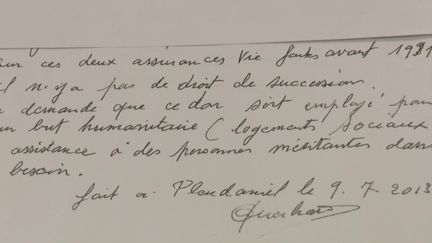 ces deux assurances Vie faites avant 1991
il n'y a pas de droit de succession.
demande que ce don soit employé pour
un but humanitaire ( logements sociaux
assistance à des personnes méritantes dans
besoin.
fait à Pleudaniel le 9.7.2013